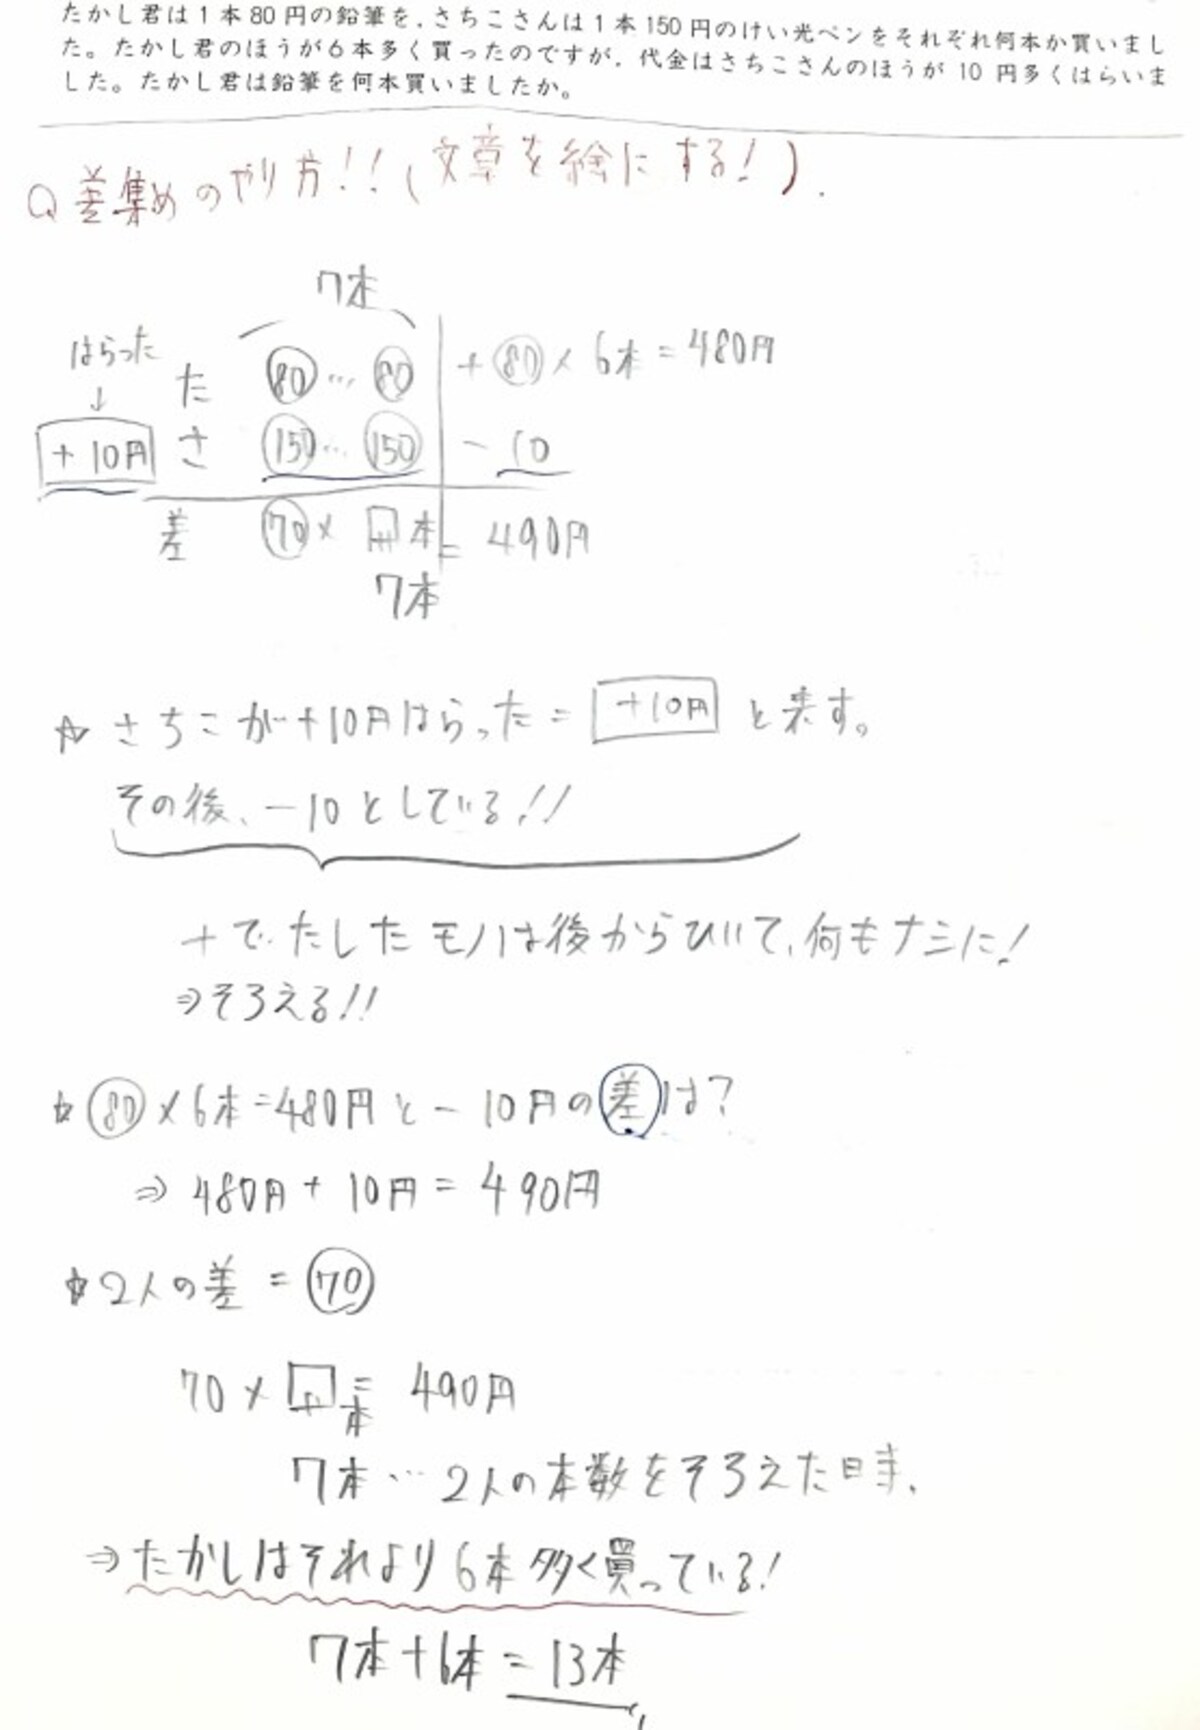 たかし君は1本80円の鉛筆を，さちこさんは1本150円のけい光ペンをそれぞれ何本か買いまし
た。たかし君のほうが6本多く買ったのですが，代金はさちこさんのほうが10円多くはらいま
した。たかし君は鉛筆を何本買いましたか。
Q 差集めのやり方!!(文章を絵にする!).
7本
はらった
↓
た 80…80 +80×6本=480円
+10円 さ 150…150 -10
差 70×□本=490円
7本
☆さちこが+10円はらった=+10円と表す。
その後、-10としている!!
+でたしたモノは後からひいて、何もナシに!
⇒そろえる!!
☆80×6本=480円と-10円の差は?
⇒480円+10円=490円
☆2人の差=70
70×□本=490円
7本…2人の本数をそろえた時、
⇒たかしはそれより6本多く買っている!
7本+6本=13本